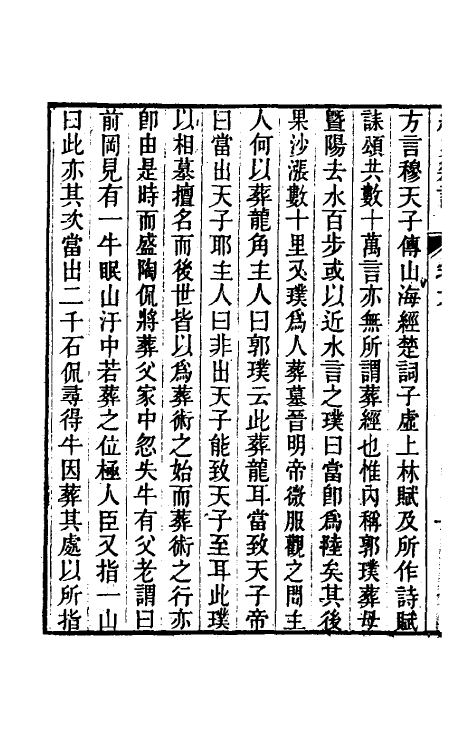 方言穆天子傳山海經楚詞子虛上林賦及所作詩賦
誄頌共數十萬言亦無所謂葬經也惟內稱郭璞葬母
暨陽去水百步或以近水言之璞曰當卽爲陸矣其後
果沙漲數十里又璞爲人葬墓晉明帝微服觀之問主
人何以葬龍角主人曰郭璞云此葬龍耳當致天子帝
曰當出天子耶主人曰非出天子能致天子至耳此璞
以相墓擅名而後世皆以爲葬術之始而葬術之行亦
卽由是時而盛陶侃將葬父家中忽失牛有父老謂曰
前岡見有一牛眠山汙中若葬之位極人臣又指一山
曰此亦其次當出二千石侃尋得牛因葬其處以所指